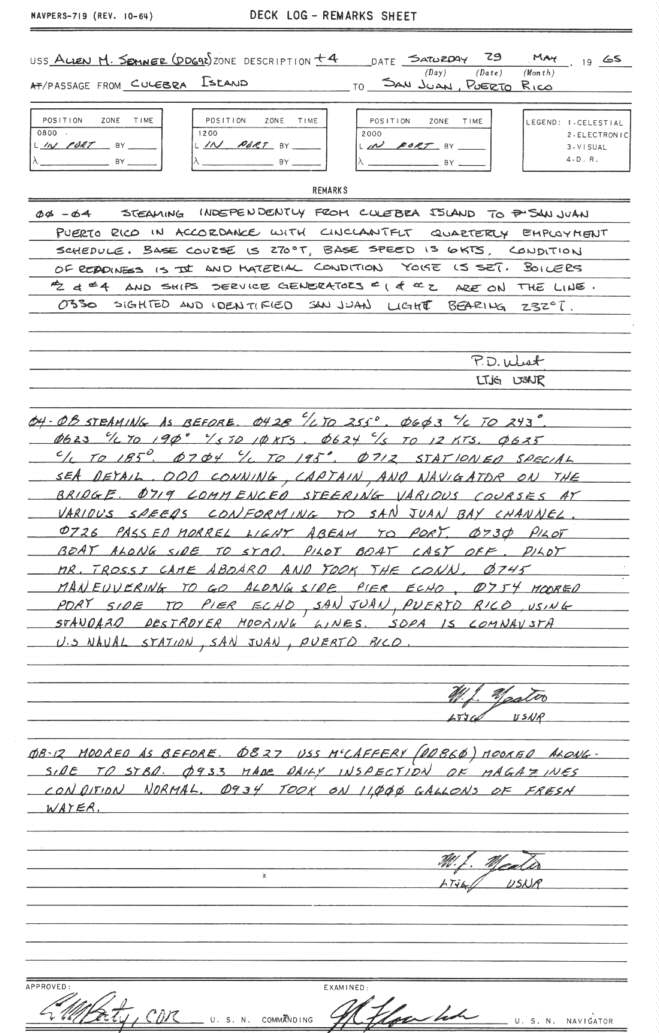 NAVPERS-719 (REV. 10-64) DECK LOG – REMARKS SHEET
USS ALLEN M. SUMNER (DD692) ZONE DESCRIPTION +4 DATE SATURDAY 29 MAY , 19 65
(Day) (Date) (Month)
AT/PASSAGE FROM CULEBRA ISLAND TO SAN JUAN, PUERTO RICO
POSITION ZONE TIME POSITION ZONE TIME POSITION ZONE TIME LEGEND: 1-CELESTIAL
0800 1200 2000 2-ELECTRONIC
L IN PORT BY L IN PORT BY L IN PORT BY 3-VISUAL
λ BY λ BY λ BY 4-D. R.
REMARKS
00-04 STEAMING INDEPENDENTLY FROM CULEBRA ISLAND TO SAN JUAN
PUERTO RICO IN ACCORDANCE WITH CINCLANTFLT QUARTERLY EMPLOYMENT
SCHEDULE. BASE COURSE IS 270°T, BASE SPEED IS 6KTS. CONDITION
OF READINESS IS IV AND MATERIAL CONDITION YOKE IS SET. BOILERS
#2 & #4 AND SHIPS SERVICE GENERATORS #1 & #2 ARE ON THE LINE.
0330 SIGHTED AND IDENTIFIED SAN JUAN LIGHT BEARING 232°T.
P.D. West
LTJG USNR
04-08 STEAMING AS BEFORE. 0428 C/C TO 255°. 0603 C/C TO 243°.
0623 C/C TO 190° C/S TO 10 KTS. 0624 C/S TO 12 KTS. 0625
C/C TO 185°. 0704 C/C TO 195°. 0712 STATIONED SPECIAL
SEA DETAIL. OOD CONNING, CAPTAIN, AND NAVIGATOR ON THE
BRIDGE. 0719 COMMENCED STEERING VARIOUS COURSES AT
VARIOUS SPEEDS CONFORMING TO SAN JUAN BAY CHANNEL.
0726 PASSED MORREL LIGHT ABEAM TO PORT. 0730 PILOT
BOAT ALONG SIDE TO STBD. PILOT BOAT CAST OFF. PILOT
MR. TROSSI CAME ABOARD AND TOOK THE CONN. 0745
MANEUVERING TO GO ALONG SIDE PIER ECHO. 0754 MOORED
PORT SIDE TO PIER ECHO, SAN JUAN, PUERTO RICO, USING
STANDARD DESTROYER MOORING LINES. SOPA IS COMNAVSTA
U.S NAVAL STATION, SAN JUAN, PUERTO RICO.
W. J.
LTJG USNR
08-12 MOORED AS BEFORE. 0827 USS McCAFFERY (DD860) MOORED ALONG-
SIDE TO STBD. 0933 MADE DAILY INSPECTION OF MAGAZINES
CONDITION NORMAL. 0934 TOOK ON 11,000 GALLONS OF FRESH
WATER.
W. J.
LTJG USNR
APPROVED: EXAMINED:
CDR U. S. N. COMMANDING U. S. N. NAVIGATOR